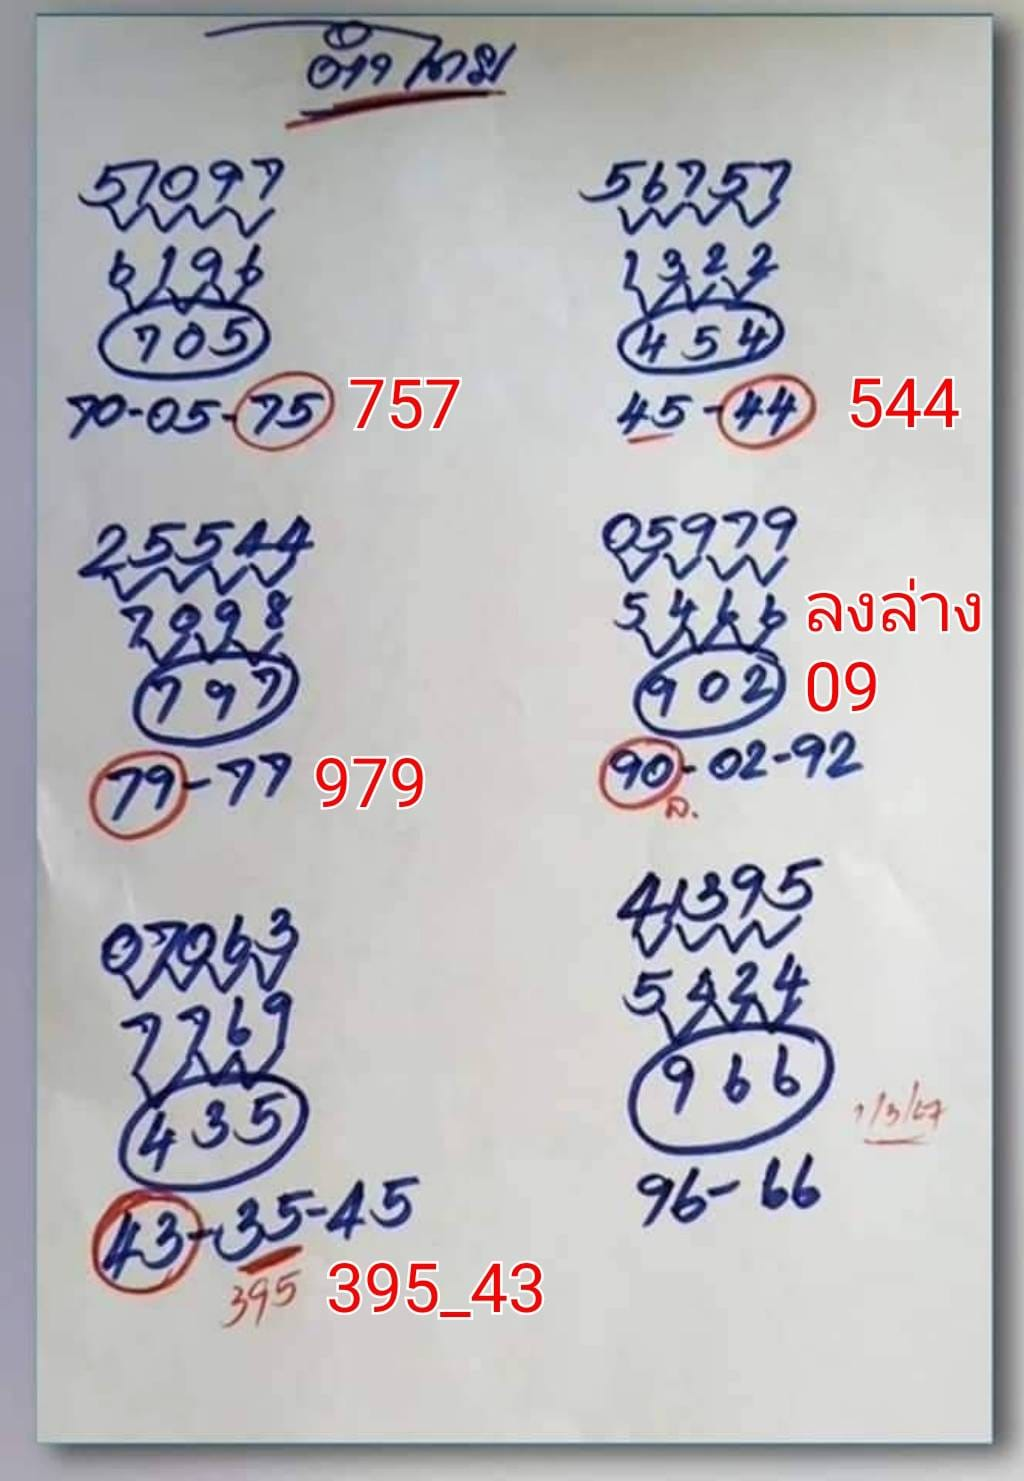 57097
6196
705
70-05-75 757
56757
1322
454
45-44 544
25544
7098
797
79-77 979
05979
5466 ลงล่าง
902 09
90-02-92
ล.
07063
7769
435
43-35-45
395 395_43
41395
5424
966
1/3/67
96-66